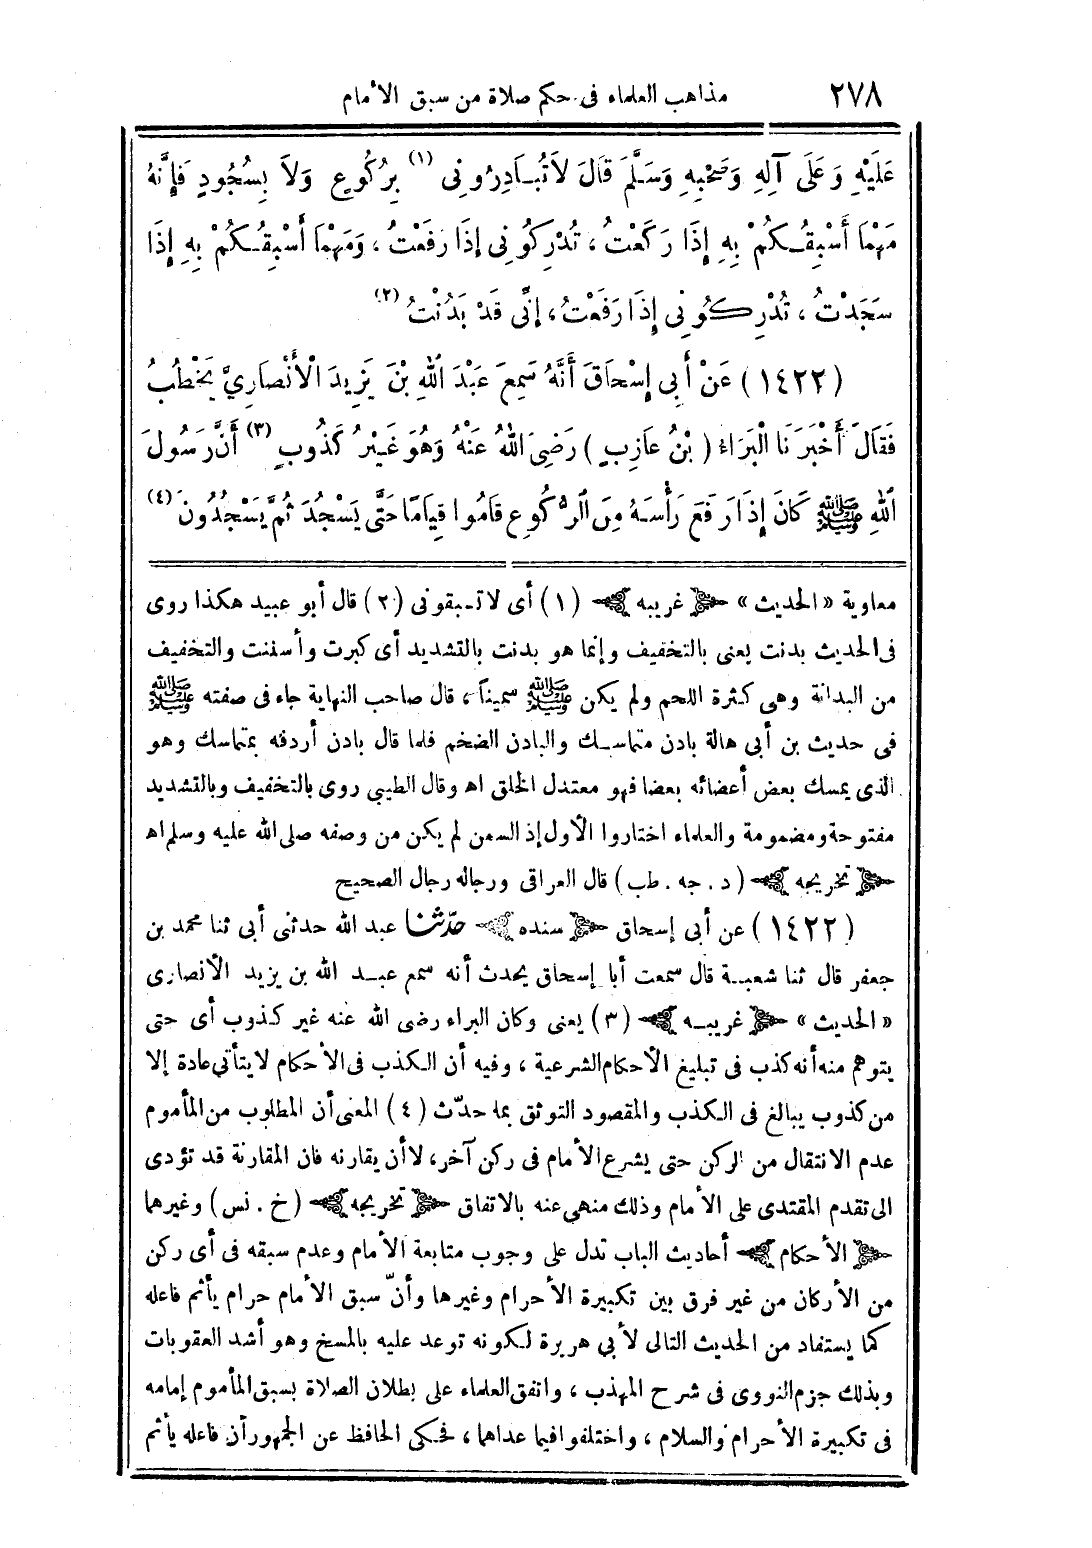 ٢٧٨ مذاهب العلماء فى حكم صلاة من سبق الأمام
عَلَيْهِ وَعَلَى آلِهِ وَصَحْبِهِ وَسَلَّمَ قَالَ لاَتُبَادِرُونِى (١) بِرُكُوعٍ وَلاَ بِسُجُودٍ فَإِنَّهُ
مَهْمَا أَسْبِقُكُمْ بِهِ إِذَا رَكَعْتُ ، تُدْرِكُونِى إِذَا رَفَعْتُ ، وَمَهْمَا أَسْبِقُكُمْ بِهِ إِذَا
سَجَدْتُ ، تُدْرِكُونِى إِذَا رَفَعْتُ ، إِنِّى قَدْ بَدُنْتُ (٢)
(١٤٢٢) عَنْ أَبِى إِسْحَاقَ أَنَّهُ سَمِعَ عَبْدَ اللهِ بْنَ يَزِيدَ الْأَنْصَارِيَّ يَخْطُبُ
فَقَالَ أَخْبَرَنَا الْبَرَاءُ (بْنُ عَازِبٍ) رَضِىَ اللهُ عَنْهُ وَهُوَ غَيْرُ كَذُوبٍ (٣) أَنَّ رَسُولَ
اللهِ ﷺ كَانَ إِذَا رَفَعَ رَأْسَهُ مِنَ الرُّكُوعِ قَامُوا قِيَامًا حَتَّى يَسْجُدَ ثُمَّ يَسْجُدُونَ (٤)
معاوية «الحديث» ﴿ غريبه ﴾ (١) أى لا تسبقونى (٢) قال أبو عبيد هكذا روى
فى الحديث بدنت يعنى بالتخفيف وإنما هو بدنت بالتشديد أى كبرت وأسننت والتخفيف
من البدانة وهى كثرة اللحم ولم يكن ﷺ سميناً ، قال صاحب النهاية جاء فى صفته ﷺ
فى حديث بن أبى هالة بادن متماسك والبادن الضخم فلما قال بادن أردفه بمتماسك وهو
الذى يمسك بعض أعضائه بعضا فهو معتدل الخلق اه وقال الطيبى روى بالتخفيف وبالتشديد
مفتوحة ومضمومة والعلماء اختاروا الأول إذ السمن لم يكن من وصفه صلى الله عليه وسلم اه
﴿ تخريجه ﴾ (د . جه . طب) قال العراقى ورجاله رجال الصحيح
(١٤٢٢) عن أبى إسحاق ﴿ سنده ﴾ حدّثنا عبد الله حدثنى أبى ثنا محمد بن
جعفر قال ثنا شعبة قال سمعت أبا إسحاق يحدث أنه سمع عبد الله بن يزيد الأنصارى
«الحديث» ﴿ غريبه ﴾ (٣) يعنى وكان البراء رضى الله عنه غير كذوب أى حتى
يتوهم منه أنه كذب فى تبليغ الأحكام الشرعية ، وفيه أن الكذب فى الأحكام لا يتأتى عادة إلا
من كذوب يبالغ فى الكذب والمقصود التوثق بما حدّث (٤) المعنى أن المطلوب من المأموم
عدم الانتقال من الركن حتى يشرع الأمام فى ركن آخر، لا أن يقارنه فان المقارنة قد تؤدى
الى تقدم المقتدى على الأمام وذلك منهى عنه بالاتفاق ﴿ تخريجه ﴾ (خ . نس) وغيرهما
﴿ الأحكام ﴾ أحاديث الباب تدل على وجوب متابعة الأمام وعدم سبقه فى أى ركن
من الأركان من غير فرق بين تكبيرة الأحرام وغيرها وأنّ سبق الأمام حرام يأثم فاعله
كما يستفاد من الحديث التالى لأبى هريرة لكونه توعد عليه بالمسخ وهو أشد العقوبات
وبذلك جزم النووى فى شرح المهذب ، واتفق العلماء على بطلان الصلاة بسبق المأموم إمامه
فى تكبيرة الأحرام والسلام ، واختلفوا فيما عداهما ، فحكى الحافظ عن الجمهور أن فاعله يأثم